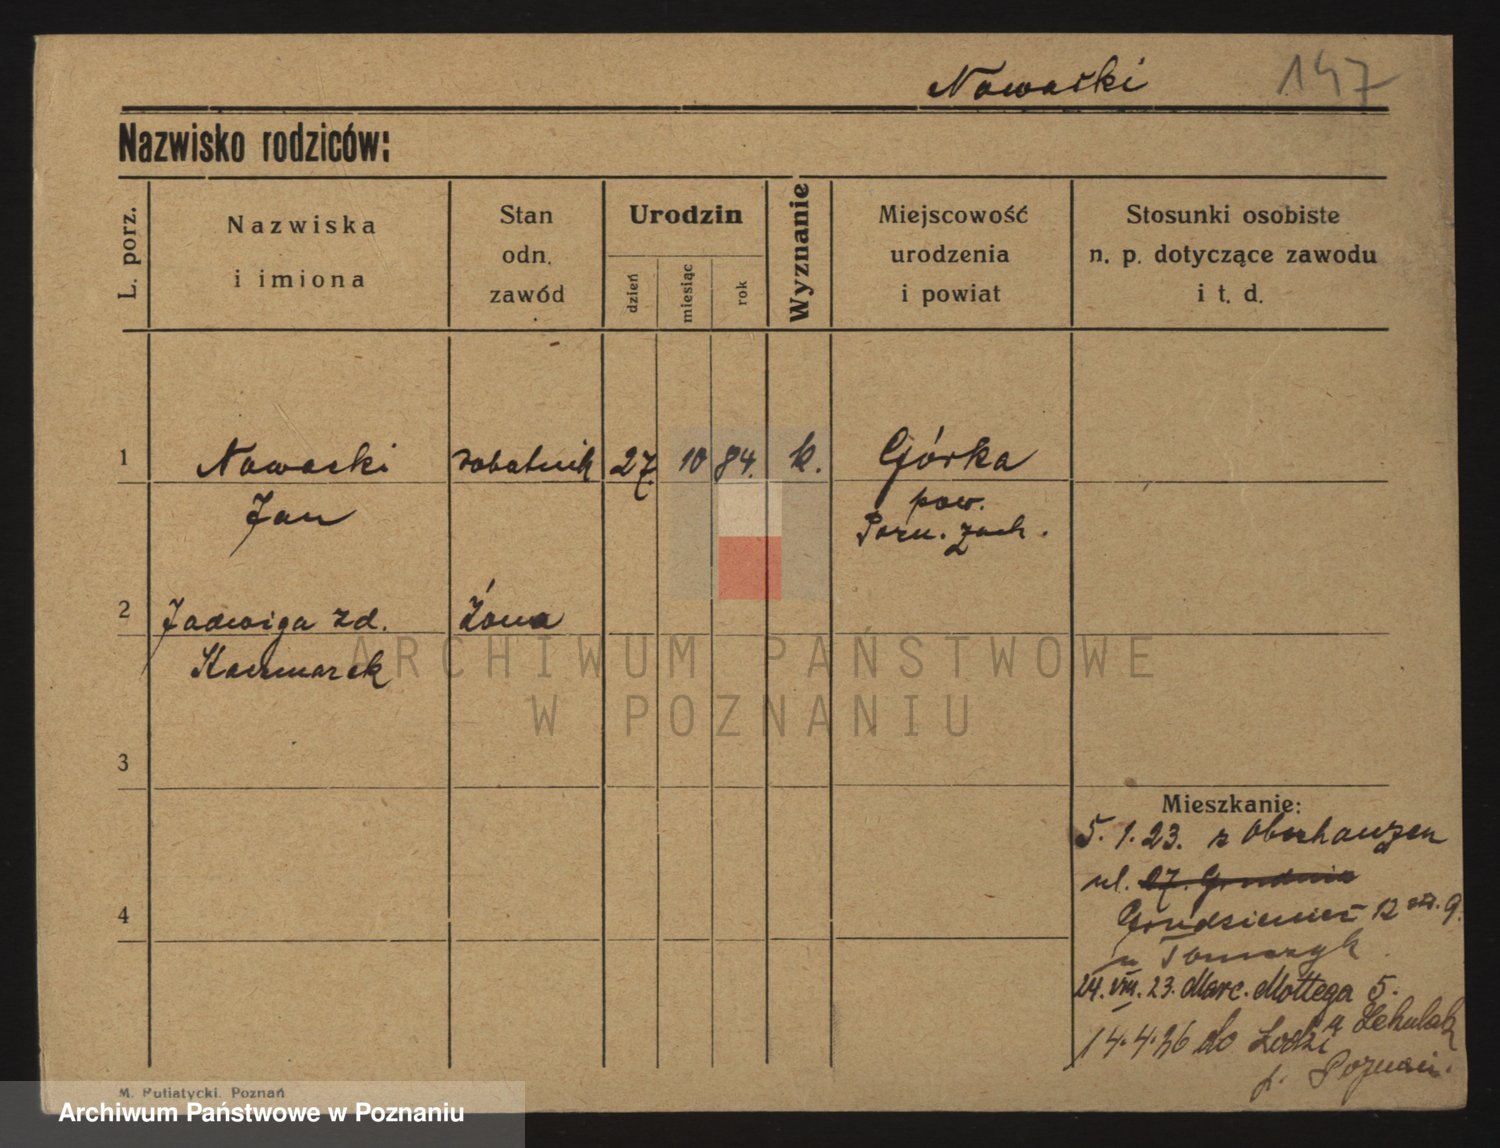 Nowacki 147
Nazwisko rodziców:
L. porz.
Nazwiska
i imiona
Stan
odn.
zawód
Urodzin
dzień
miesiąc
rok
Wyznanie
Miejscowość
urodzenia
i powiat
Stosunki osobiste
n. p. dotyczące zawodu
i t. d.
1 Nowacki robotnik 27. 10 84. k. Górka
Jan pow.
Pozn. zach.
2 Jadwiga zd. Żona
Kaczmarek
ARCHIWUM PAŃSTWOWE
W POZNANIU
3
Mieszkanie:
5. 1. 23. z Oberhausen
ul. 27. Grudnia
4
Grudzieniec 12 m. 9.
u Tomczyk
24. VIII. 23. Marc. Mottega 5.
u
14.4.26 do Łodzi
p. Poznań.
M. Putiatycki, Poznań
Archiwum Państwowe w Poznaniu